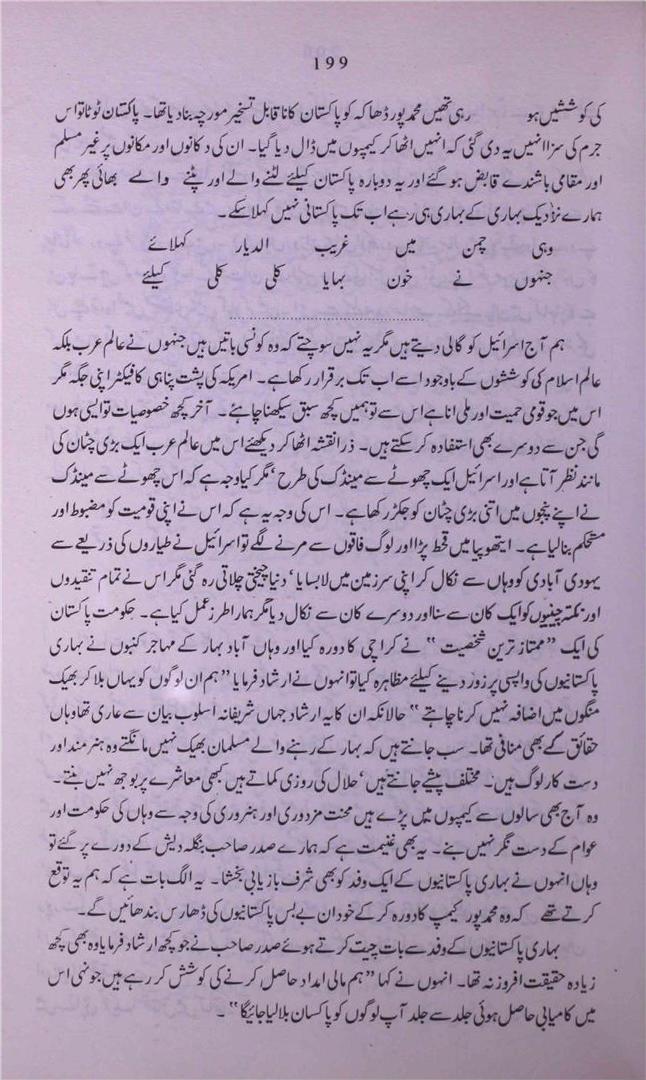 199
کی کوششیں ہو رہی تھیں محمد پور ڈھاکہ کو پاکستان کا ناقابل تسخیر مورچہ بنا دیا تھا۔ پاکستان ٹوٹا تو اس
جرم کی سزا انہیں یہ دی گئی کہ انہیں اٹھا کر کیمپوں میں ڈال دیا گیا۔ ان کی دکانوں اور مکانوں پر غیر مسلم
اور مقامی باشندے قابض ہو گئے اور یہ دوبارہ پاکستان کیلئے لٹنے والے اور پٹنے والے بھائی پھر بھی
ہمارے نزدیک بہاری کے بہاری ہی رہے اب تک پاکستانی نہیں کہلا سکے۔
وہی چمن میں غریب الدیار کہلائے
جنہوں نے خون بہایا کلی کلی کیلئے
ہم آج اسرائیل کو گالی دیتے ہیں مگر یہ نہیں سوچتے کہ وہ کونسی باتیں ہیں جنہوں نے عالم عرب بلکہ
عالم اسلام کی کوششوں کے باوجود اسے اب تک برقرار رکھا ہے۔ امریکہ کی پشت پناہی کا فیکٹر اپنی جگہ مگر
اس میں جو قومی حمیت اور ملی انا ہے اس سے تو ہمیں کچھ سبق سیکھنا چاہئے۔ آخر کچھ خصوصیات تو ایسی ہوں
گی جن سے دوسرے بھی استفادہ کر سکتے ہیں۔ ذرا نقشہ اٹھا کر دیکھئے اس میں عالم عرب ایک بڑی چٹان کی
مانند نظر آتا ہے اور اسرائیل ایک چھوٹے سے مینڈک کی طرح ‘ مگر کیا وجہ ہے کہ اس چھوٹے سے مینڈک
نے اپنے پنجوں میں اتنی بڑی چٹان کو جکڑ رکھا ہے۔ اس کی وجہ یہ ہے کہ اس نے اپنی قومیت کو مضبوط اور
مستحکم بنا لیا ہے۔ ایتھوپیا میں قحط پڑا اور لوگ فاقوں سے مرنے لگے تو اسرائیل نے طیاروں کی ذریعے سے
یہودی آبادی کو وہاں سے نکال کر اپنی سرزمین میں لا بسایا ‘ دنیا چیختی چلاتی رہ گئی مگر اس نے تمام تنقیدوں
اور نکتہ چینیوں کو ایک کان سے سنا اور دوسرے کان سے نکال دیا مگر ہمارا طرز عمل کیا ہے۔ حکومت پاکستان
کی ایک ”ممتاز ترین شخصیت“ نے کراچی کا دورہ کیا اور وہاں آباد بہار کے مہاجر کنبوں نے بہاری
پاکستانیوں کی واپسی پر زور دینے کیلئے مظاہرہ کیا تو انہوں نے ارشاد فرمایا ”ہم ان لوگوں کو یہاں بلا کر بھیک
منگوں میں اضافہ نہیں کرنا چاہتے“ حالانکہ ان کا یہ ارشاد جہاں شریفانہ اسلوب بیان سے عاری تھا وہاں
حقائق کے بھی منافی تھا۔ سب جانتے ہیں کہ بہار کے رہنے والے مسلمان بھیک نہیں مانگتے وہ ہنرمند اور
دست کار لوگ ہیں۔ مختلف پیشے جانتے ہیں ‘ حلال کی روزی کماتے ہیں کبھی معاشرے پر بوجھ نہیں بنتے۔
وہ آج بھی سالوں سے کیمپوں میں پڑے ہیں محنت مزدوری اور ہنروری کی وجہ سے وہاں کی حکومت اور
عوام کے دست نگر نہیں بنے۔ یہ بھی غنیمت ہے کہ ہمارے صدر صاحب بنگلہ دیش کے دورے پر گئے تو
وہاں انہوں نے بہاری پاکستانیوں کے ایک وفد کو بھی شرف باز یابی بخشا۔ یہ الگ بات ہے کہ ہم یہ توقع
کرتے تھے کہ وہ محمد پور کیمپ کا دورہ کر کے خود ان بے بس پاکستانیوں کی ڈھارس بندھائیں گے۔
بہاری پاکستانیوں کے وفد سے بات چیت کرتے ہوئے صدر صاحب نے جو کچھ ارشاد فرمایا وہ بھی کچھ
زیادہ حقیقت افروز نہ تھا۔ انہوں نے کہا ”ہم مالی امداد حاصل کرنے کی کوشش کر رہے ہیں جونہی اس
میں کامیابی حاصل ہوئی جلد سے جلد آپ لوگوں کو پاکسان بلا لیا جائیگا“۔